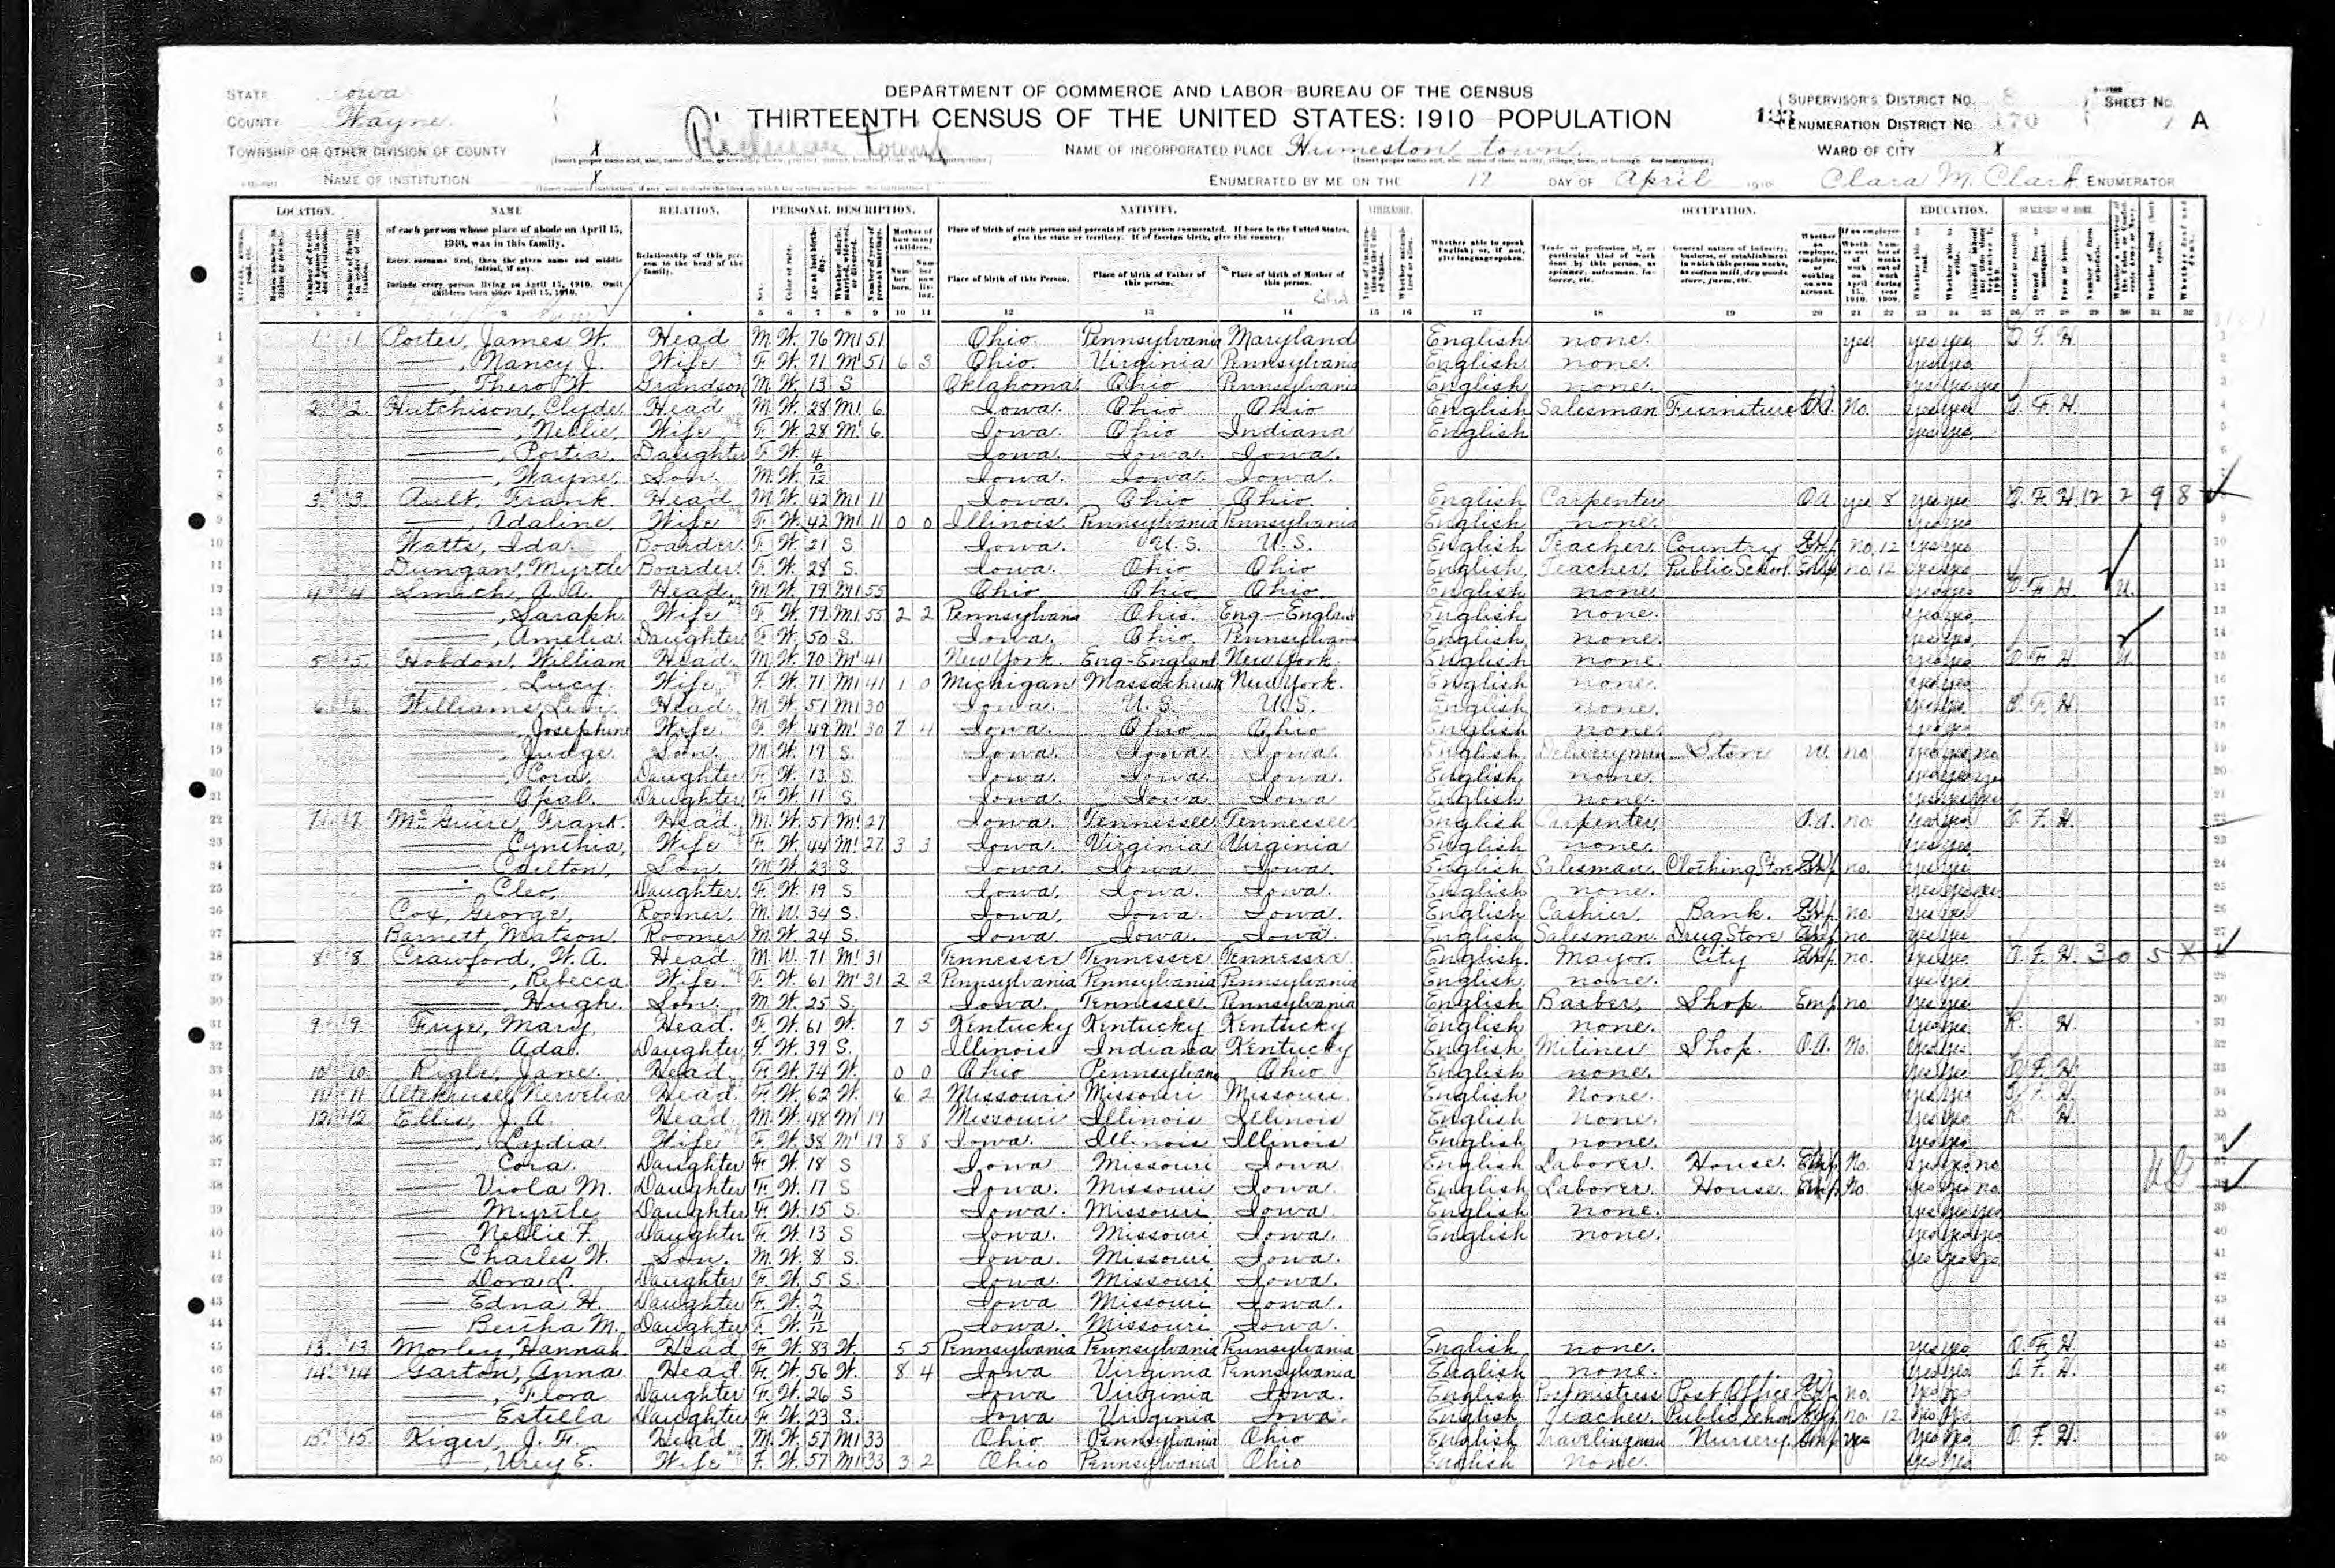 DEPARTMENT OF COMMERCE AND LABOR-BUREAU OF THE CENSUS
THIRTEENTH CENSUS OF THE UNITED STATES: 1910 POPULATION
STATE Iowa
COUNTY Wayne
TOWNSHIP OR OTHER DIVISION OF COUNTY X
NAME OF INSTITUTION X
NAME OF INCORPORATED PLACE Humeston town
ENUMERATED BY ME ON THE 17 DAY OF April 1910
SUPERVISOR'S DISTRICT NO. 8
ENUMERATION DISTRICT NO. 170
SHEET NO. 1 A
WARD OF CITY X
Clara M. Clark ENUMERATOR
LOCATION. NAME RELATION. PERSONAL DESCRIPTION. NATIVITY. CITIZENSHIP. OCCUPATION. EDUCATION. OWNERSHIP OF HOME.
of each person whose place of abode on April 15, 1910, was in this family.
Enter surname first, then the given name and middle initial, if any.
Include every person living on April 15, 1910. Omit children born since April 15, 1910.
Relationship of this person to the head of the family.
Place of birth of each person and parents of each person enumerated. If born in the United States, give the state or territory. If of foreign birth, give the country.
Place of birth of this Person. Place of birth of Father of this person. Place of birth of Mother of this person.
Whether able to speak English; or, if not, give language spoken.
1 1 1 Porter, James W. Head M W 76 M1 51 Ohio Pennsylvania Maryland English none. yes yes yes O F H
2 ——, Nancy J. Wife F W 71 M1 51 6 3 Ohio Virginia Pennsylvania English none. yes yes
3 ——, W. Grandson M W 13 S Oklahoma Ohio Pennsylvania English none. yes yes yes
4 2 2 Hutchison, Clyde Head M W 28 M1 6 Iowa Ohio Ohio English Salesman Furniture No. yes yes O F H
5 ——, Nellie Wife F W 28 M1 6 Iowa Ohio Indiana English yes yes
6 ——, Portia Daughter F W 4 Iowa Iowa Iowa
7 ——, Wayne Son M W 0/12 Iowa Iowa Iowa
8 3 3 Ault, Frank Head M W 42 M1 11 Iowa Ohio Ohio English Carpenter OA yes 8 yes yes O F H 12 2 9 8
9 ——, Adaline Wife F W 42 M1 11 0 0 Illinois Pennsylvania Pennsylvania English none. yes yes
10 Watts, Ida Boarder F W 21 S Iowa U.S. U.S. English Teacher Country Emp no 12 yes yes
11 Dungan, Myrtle Boarder F W 28 S Iowa Ohio Ohio English Teacher Public School Emp no 12 yes yes
12 4 4 A. A. Head M W 79 M1 55 Ohio Ohio Ohio English none yes yes O F H
13 ——, Saraph Wife F W 79 M1 55 2 2 Pennsylvania Ohio Eng-England English none. yes yes
14 ——, Amelia Daughter F W 50 S Iowa Ohio Pennsylvania English none. yes yes
15 5 5 Hobdon, William Head M W 70 M1 41 New York Eng-England New York English none yes yes O F H
16 ——, Lucy Wife F W 71 M1 41 1 0 Michigan Massachus New York English none. yes yes
17 6 6 Williams, Levi Head M W 51 M1 30 Iowa U.S. U.S. English none. yes yes O F H
18 —— Josephine Wife F W 49 M1 30 7 4 Iowa Ohio Ohio English none. yes yes
19 ——, Judge Son M W 19 S Iowa Iowa Iowa English Deliveryman Store W no yes yes no
20 ——, Cora Daughter F W 13 S Iowa Iowa Iowa English none. yes yes yes
21 —— Opal Daughter F W 11 S Iowa Iowa Iowa English none. yes yes yes
22 7 7 McGuire, Frank Head M W 51 M1 27 Iowa Tennessee Tennessee English Carpenter O.A. no. yes yes O F H
23 —— Cynthia Wife F W 44 M1 27 3 3 Iowa Virginia Virginia English none. yes yes
24 —— Carlton Son M W 23 S Iowa Iowa Iowa English Salesman Clothing Store Emp no. yes yes
25 —— Cleo Daughter F W 19 S Iowa Iowa Iowa English none. yes yes yes
26 Cox, George Roomer M W 34 S Iowa Iowa Iowa English Cashier Bank. Emp no. yes yes
27 Barnett Matson Roomer M W 24 S Iowa Iowa Iowa English Salesman Drug Store Emp no. yes yes
28 8 8 Crawford, W. A. Head M W 71 M1 31 Tennessee Tennessee Tennessee English Mayor City Emp no. yes yes O F H 3 0 5 X
29 ——, Rebecca Wife F W 61 M1 31 2 2 Pennsylvania Pennsylvania Pennsylvania English none. yes yes
30 —— Hugh Son M W 25 S Iowa Tennessee Pennsylvania English Barber Shop Emp no. yes yes
31 9 9 Frye, Mary Head F W 61 W 7 5 Kentucky Kentucky Kentucky English none. yes yes R H
32 —— Ada Daughter F W 39 S Illinois Indiana Kentucky English Miliner Shop O.A. No. yes yes
33 10 10 Rigle, Jane Head F W 74 W 0 0 Ohio Pennsylvania Ohio English none. yes yes O F H
34 11 11 Head F W 62 W 6 2 Missouri Missouri Missouri English None. yes yes O F H
35 12 12 Ellis, J. A. Head M W 48 M1 19 Missouri Illinois Illinois English none. yes yes R H
36 ——, Lydia Wife F W 38 M1 19 8 8 Iowa Illinois Illinois English none. yes yes
37 —— Cora Daughter F W 18 S Iowa Missouri Iowa English Laborer House Emp No. yes yes no
38 —— Viola M. Daughter F W 17 S Iowa Missouri Iowa English Laborer House Emp No yes yes no
39 —— Myrtle Daughter F W 15 S Iowa Missouri Iowa English none. yes yes yes
40 —— Nellie F. Daughter F W 13 S Iowa Missouri Iowa English none. yes yes yes
41 —— Charles W. Son M W 8 S Iowa Missouri Iowa yes yes yes
42 —— Dora L. Daughter F W 5 S Iowa Missouri Iowa
43 —— Edna H. Daughter F W 2 Iowa Missouri Iowa
44 —— Bertha M. Daughter F W 11/12 Iowa Missouri Iowa
45 13 13 Morley, Hannah Head F W 83 W 5 5 Pennsylvania Pennsylvania Pennsylvania English none. yes yes O F H
46 14 14 Garton, Anna Head F W 56 W 8 4 Iowa Virginia Pennsylvania English none. yes yes O F H
47 ——, Flora Daughter F W 26 S Iowa Virginia Iowa English Postmistress Post Office Emp no. yes yes
48 —— Estella Daughter F W 23 S Iowa Virginia Iowa English Teacher Public School Emp no 12 yes yes
49 15 15 Kiger, J. F. Head M W 57 M1 33 Ohio Pennsylvania Ohio English Travelingman Nursery Emp yes yes yes O F H
50 ——, E. Wife F W 57 M1 33 3 2 Ohio Pennsylvania Ohio English None. yes yes